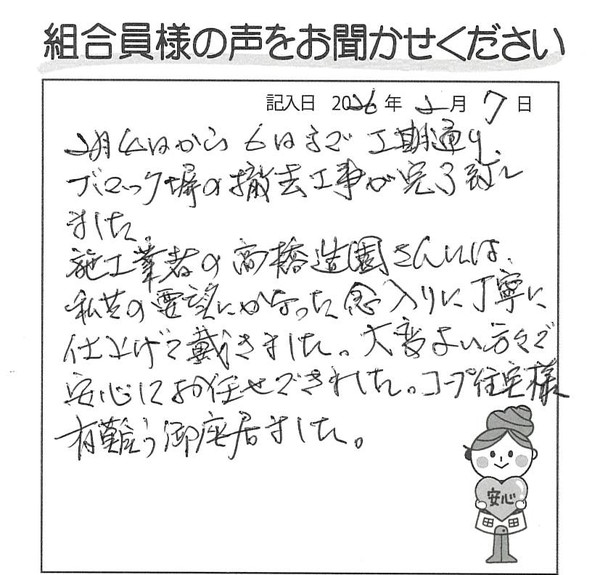 組合員様の声をお聞かせください
記入日 2026年 2月 7日
2月4日から6日まで工期通り、
ブロック塀の撤去工事が完了致し
ました。
施工業者の高橋造園さんには、
私共の要望にかなった念入りに丁寧に
仕上げて戴きました。大変よい方々で
安心してお任せできました。コープ住宅様
有難う御座居ました。
安心